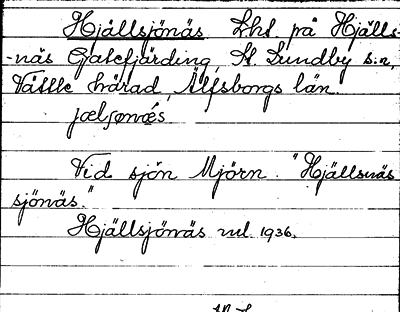 Hjällsjönäs, Lht på Hjälls-
-näs Gatefjärding, St. Lundby s:n,
Vättle härad, Älfsborgs län.
jælʃønæ̀s.
Vid sjön Mjörn. "Hjällsnäs
sjönäs."
Hjällsjönäs 1936.